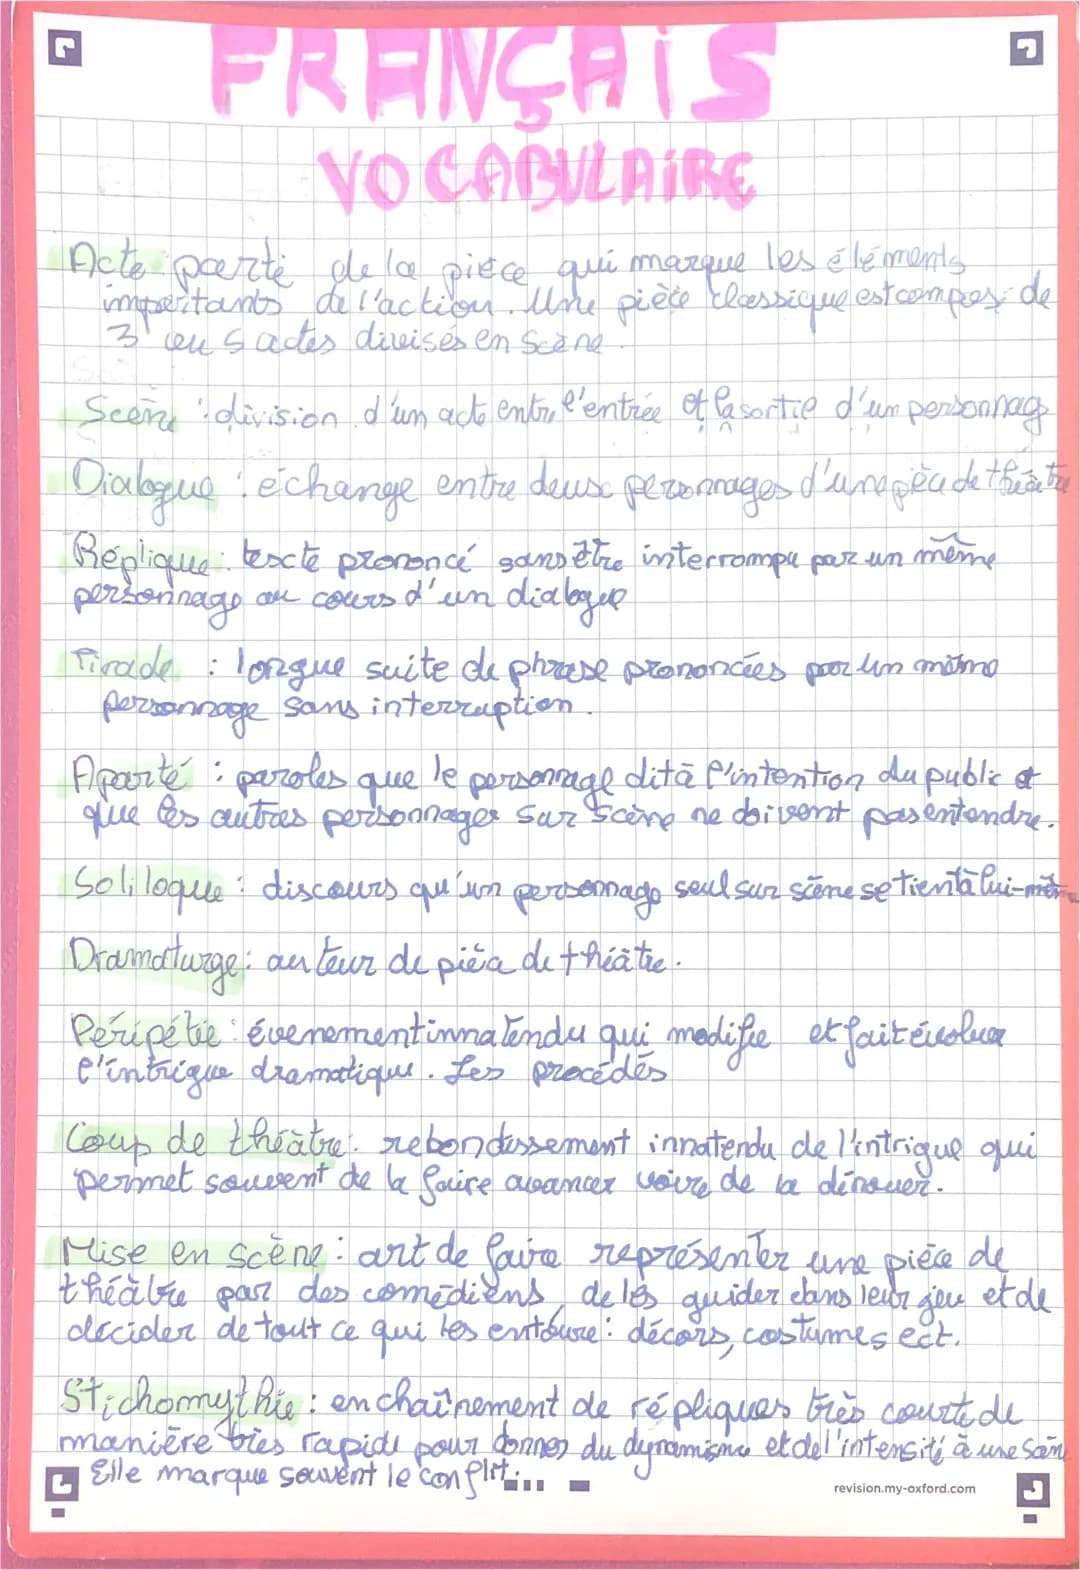 FRANÇAIS
VOCABULAIRE
Acte : partie de la pièce qui marque les éléments
importants de l'action. Une pièce classique est composé de
3 ou 5 actes divisés en scène.
Scène : division d'un acte entre l'entrée et la sortie d'un personnag
Dialogue : échange entre deux personnages d'une pièce de théâtre
Réplique : texte prononcé sans être interrompu par un même
personnage au cours d'un dialogue
Tirade : longue suite de phrase prononcées par un même
personnage sans interruption.
Aparté : paroles que le personnage dit à l'intention du public et
que les autres personnages sur scène ne doivent pas entendre.
Soliloque : discours qu'un personnage seul sur scène se tient à lui-même
Dramaturge : auteur de pièce de théâtre.
Péripétie : évenement innatendu qui modifie et fait évoluer
l'intrigue dramatique. Les procédés
Coup de théâtre : rebondissement innatendu de l'intrigue qui
permet souvent de la faire avancer voire de la dénouer.
Mise en scène : art de faire représenter une pièce de
théâtre par des comédiens, de les guider dans leur jeu et de
décider de tout ce qui les entoure : décors, costumes ect.
Stichomythie : enchaînement de répliques très courte de
manière très rapide pour donner du dynamisme et de l'intensité à une scène
Elle marque souvent le conflit...
revision.my-oxford.com